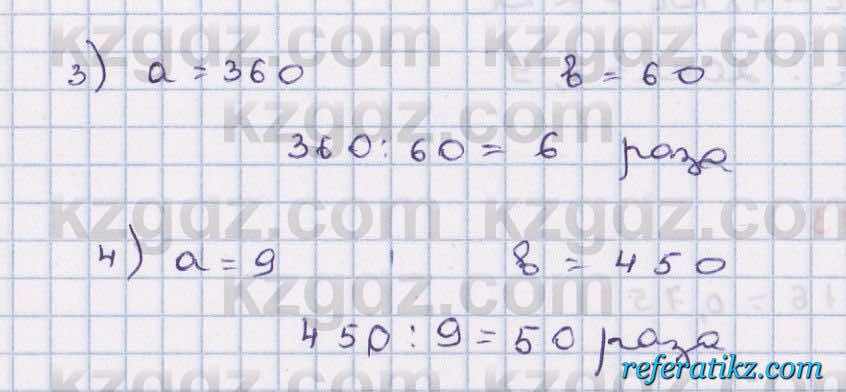 3) a = 360 в = 60
360 : 60 = 6 раза
4) a = 9 в = 450
450 : 9 = 50 раза
kzgdz.com kzgdz.com
kzgdz.com
kzgdz.com kzgdz.com
kzgdz.com
kzgdz.com kzgdz.com
referatikz.com